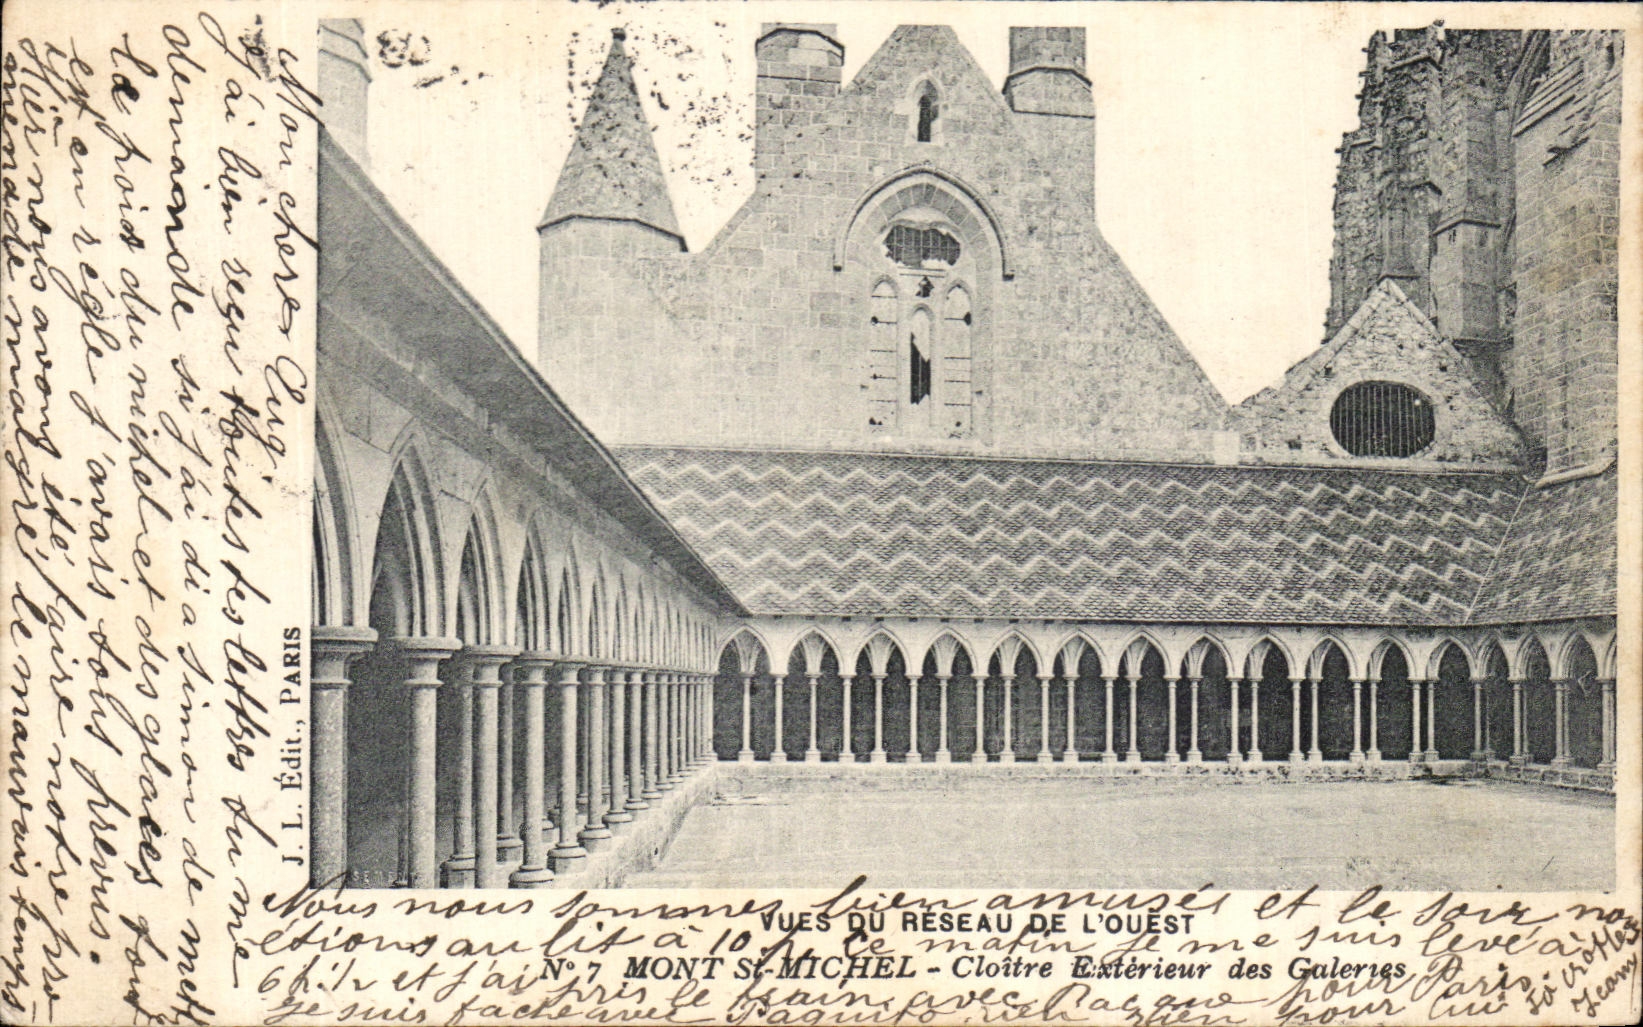 Mon cher Eug.
j'ai bien reçu toutes tes lettres tu me
demande si j'ai di a simon de mett
le poids du nichel et des glaces tout
est en règle j'avais tous prevus.
Hier nous avons été faire notre pro-
menade malgré le mauvais temps
Nous nous sommes bien amusés et le soir nou
étions au lit à 10 h. Ce matin je me suis levé à
6 h. 1/2 et j'ai pris le train avec pour Paris
Je suis faché avec Paquito rien pour lui
Jeam
J. L. Édit., PARIS
VUES DU RÉSEAU DE L'OUEST
N° 7 MONT St-MICHEL - Cloître Extérieur des Galeries